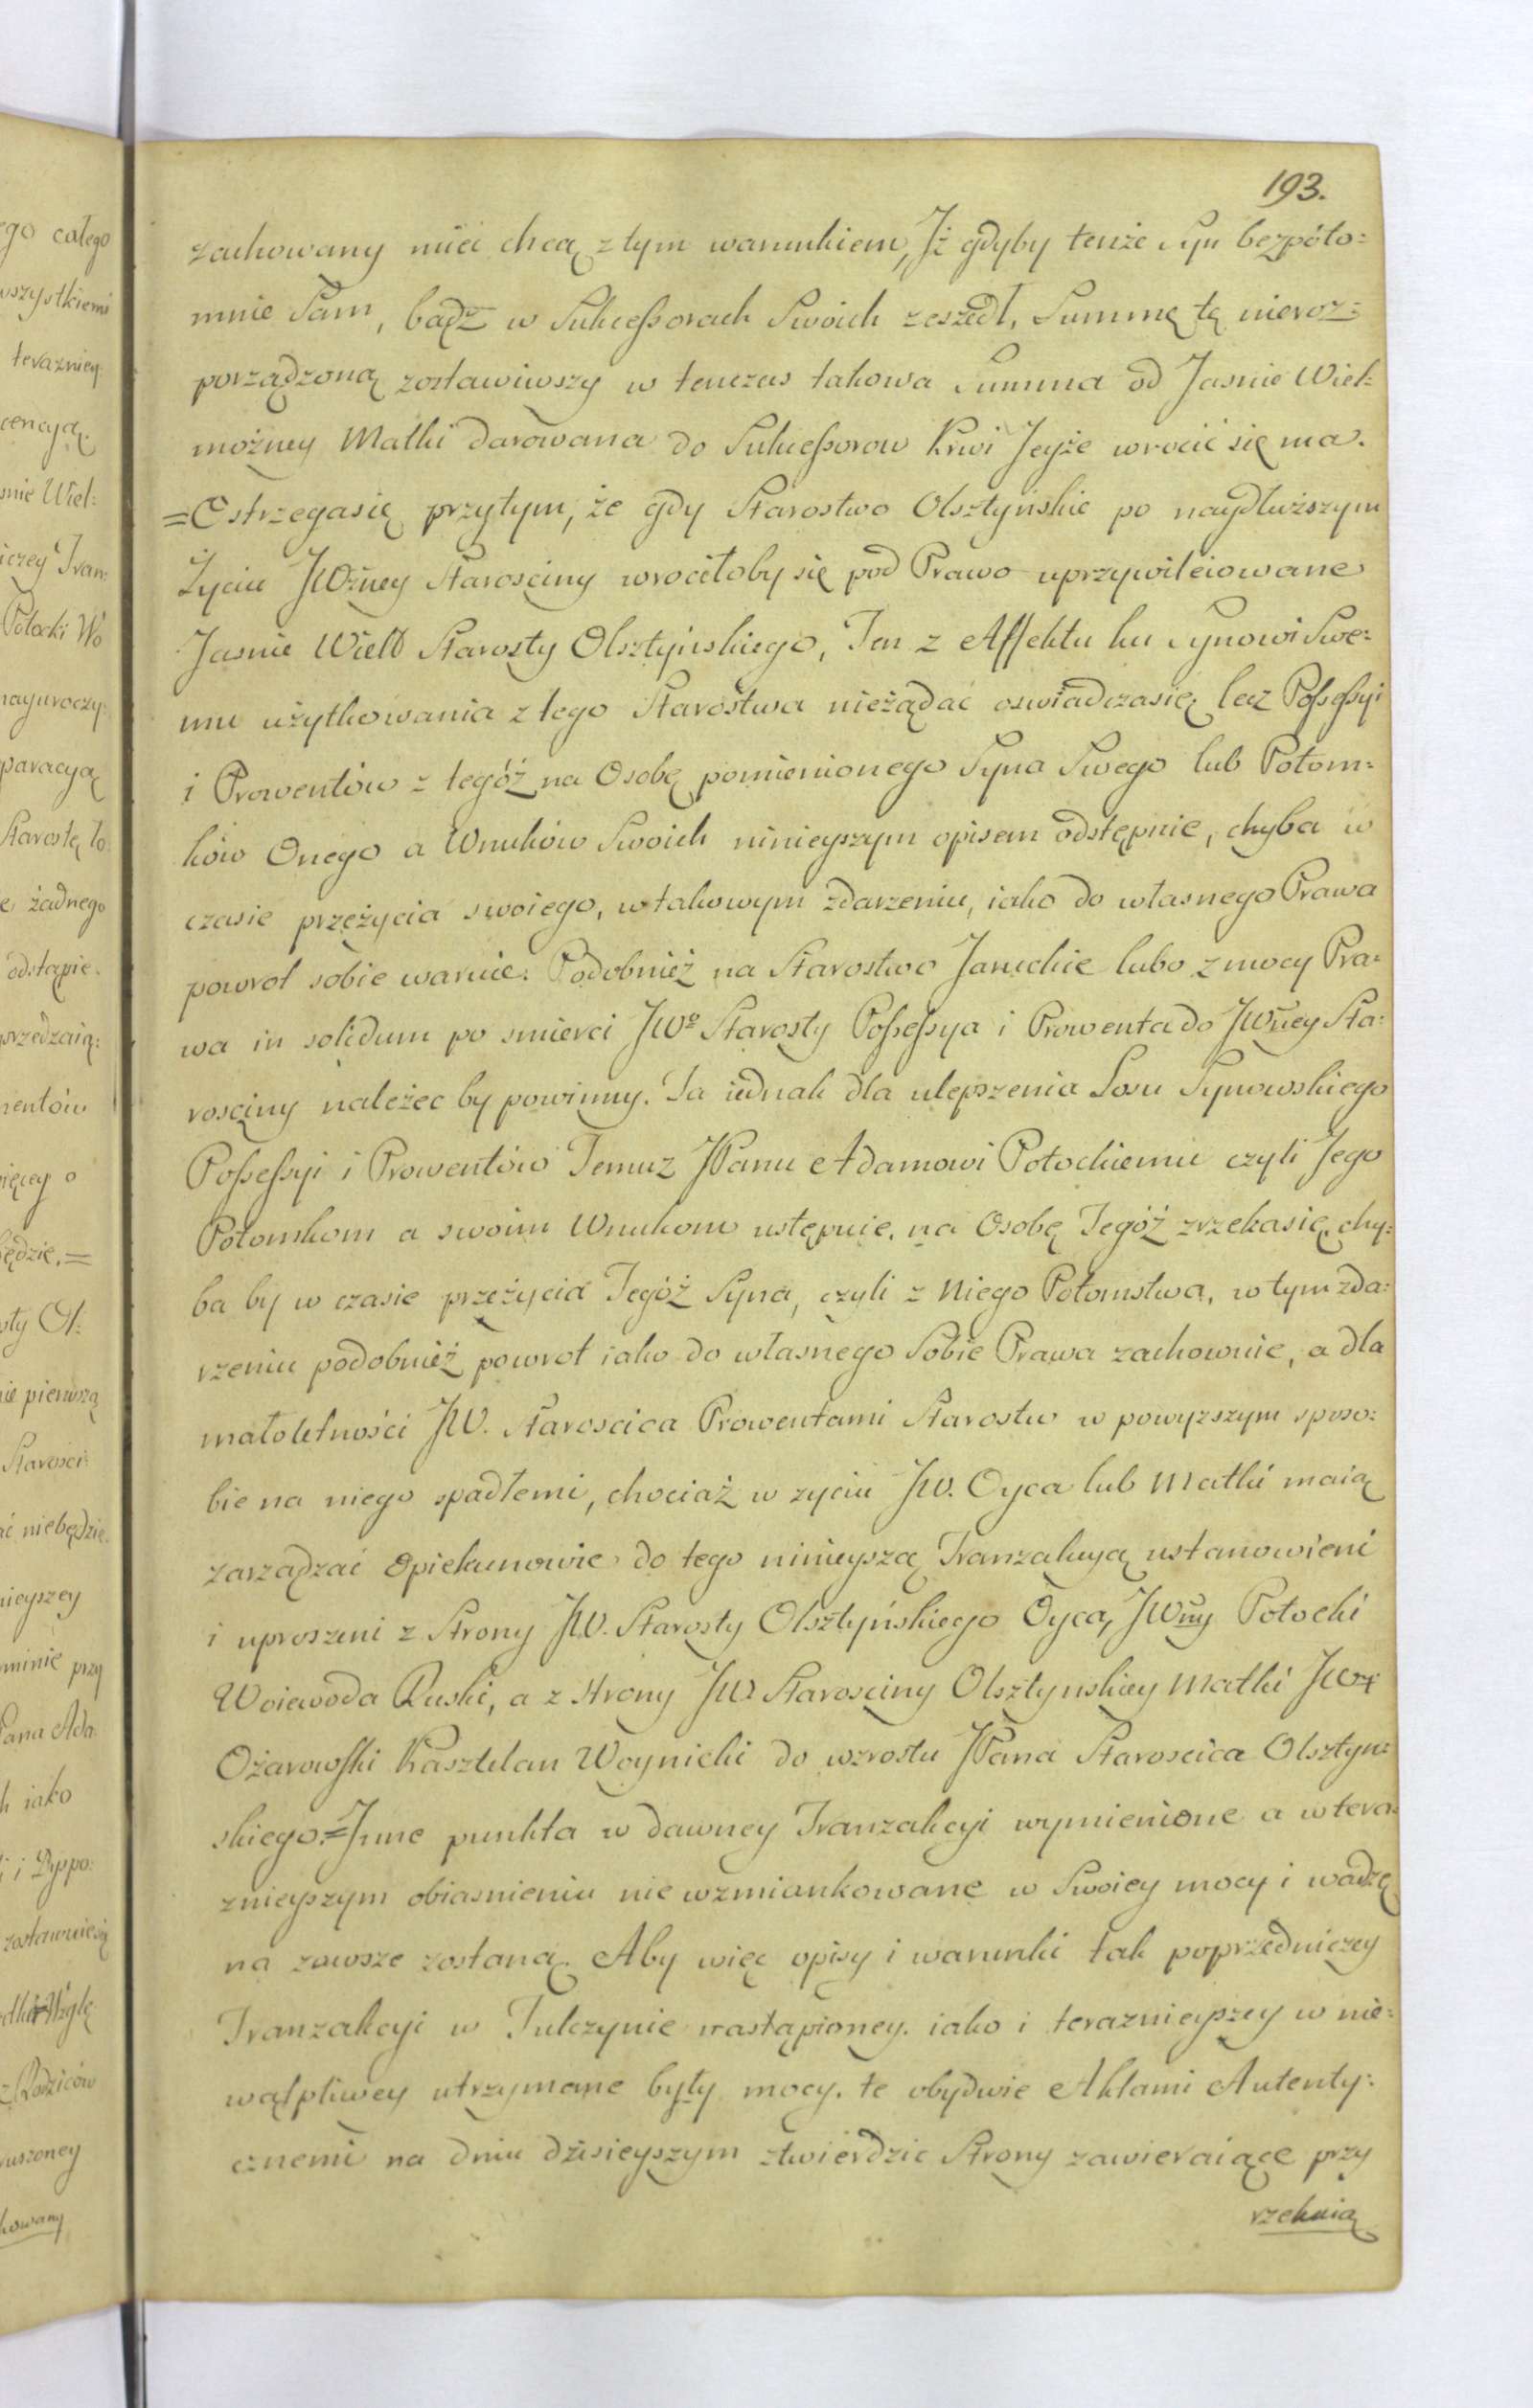 193.
zachowany mieć chcą z tym warunkiem, Jż gdyby tenże Syn bezpoto=
mnie Sam, bądz w Sukcessorach Swoich zeszedł, Summę tę nieroz=
porządzoną zostawiwszy w tenczas takowa Summa od Jasnie Wiel=
możney Matki darowana do Sukcessorow Krwi Jeyże wrocić się ma.
=Ostrzegasię przytym, że gdy Starostwo Olsztyńskie po naydłuższym
Życiu JWżney Starosciny wrociłoby się pod Prawo uprzywileiowane
Jasnie Wielo Starosty Olsztyińskiego, Ten z Affektu ku Synowi Swe=
mu użytkowania z tego Starostwa nieżądać oswiadczasię lecz Possessyi
i Prowentów z tegóż na Osobę pomienionego Syna Swego lub Potom=
ków Onego a Wnuków Swoich ninieyszym opisem odstępuie, chyba w
czasie przeżycia swoiego, w takowym zdarzeniu, iako do własnego Prawa
powrot sobie waruie. Podobnież na Starostwo Janickie lubo z mocy Pra=
wa in solidum po smierci JWo Starosty Possessya i Prowenta do JWney Sta=
rosciny należec by powinny. Ta iednak dla ulepszenia Losu Synowskiego
Possessyi i Prowentów Temuz JPanu Adamowi Potockiemu czyli Jego
Potomkom a swoim Wnukom ustępuie, na Osobę Tegóż zrzekasię, chy=
ba by w czasie przeżycia Tegóż Syna, czyli z Niego Potomstwa, w tym zda=
rzeniu podobnież powrot iako do własnego Sobie Prawa zachowuie, a dla
małoletności JW. Staroscica Prowentami Starostw w powyzszym sposo=
bie na niego spadłemi, chociaż w zyciu JW. Oyca lub Matki maią
zarządzać Opiekunowie do tego ninieyszą Tranzakcyą ustanowieni
i uproszeni z Strony JW. Starosty Olsztyńskiego Oyca, JWny Potocki
Woiewoda Ruski, a z strony JW Starosciny Olsztynskiey Matki JW
Ożarowski Kasztelan Woynicki do wzrostu JPana Staroscica Olsztyn=
skiego.=Jnne punkta w dawney Tranzakcyi wymienione a w tera=
znieyszym obiasnieniu nie wzmiankowane w Swoiey mocy i wadzę
na zawsze zostaną. Aby więc opisy i warunki tak poprzedniczey
Tranzakcyi w Tulczynie nastąpioney. iako i teraznieyszey w nie=
wątpliwey utrzymane były mocy. te obydwie Aktami Autenty=
cznemi na dniu dzisieyszym stwierdzic Strony zawieraiące przy
rzekaią